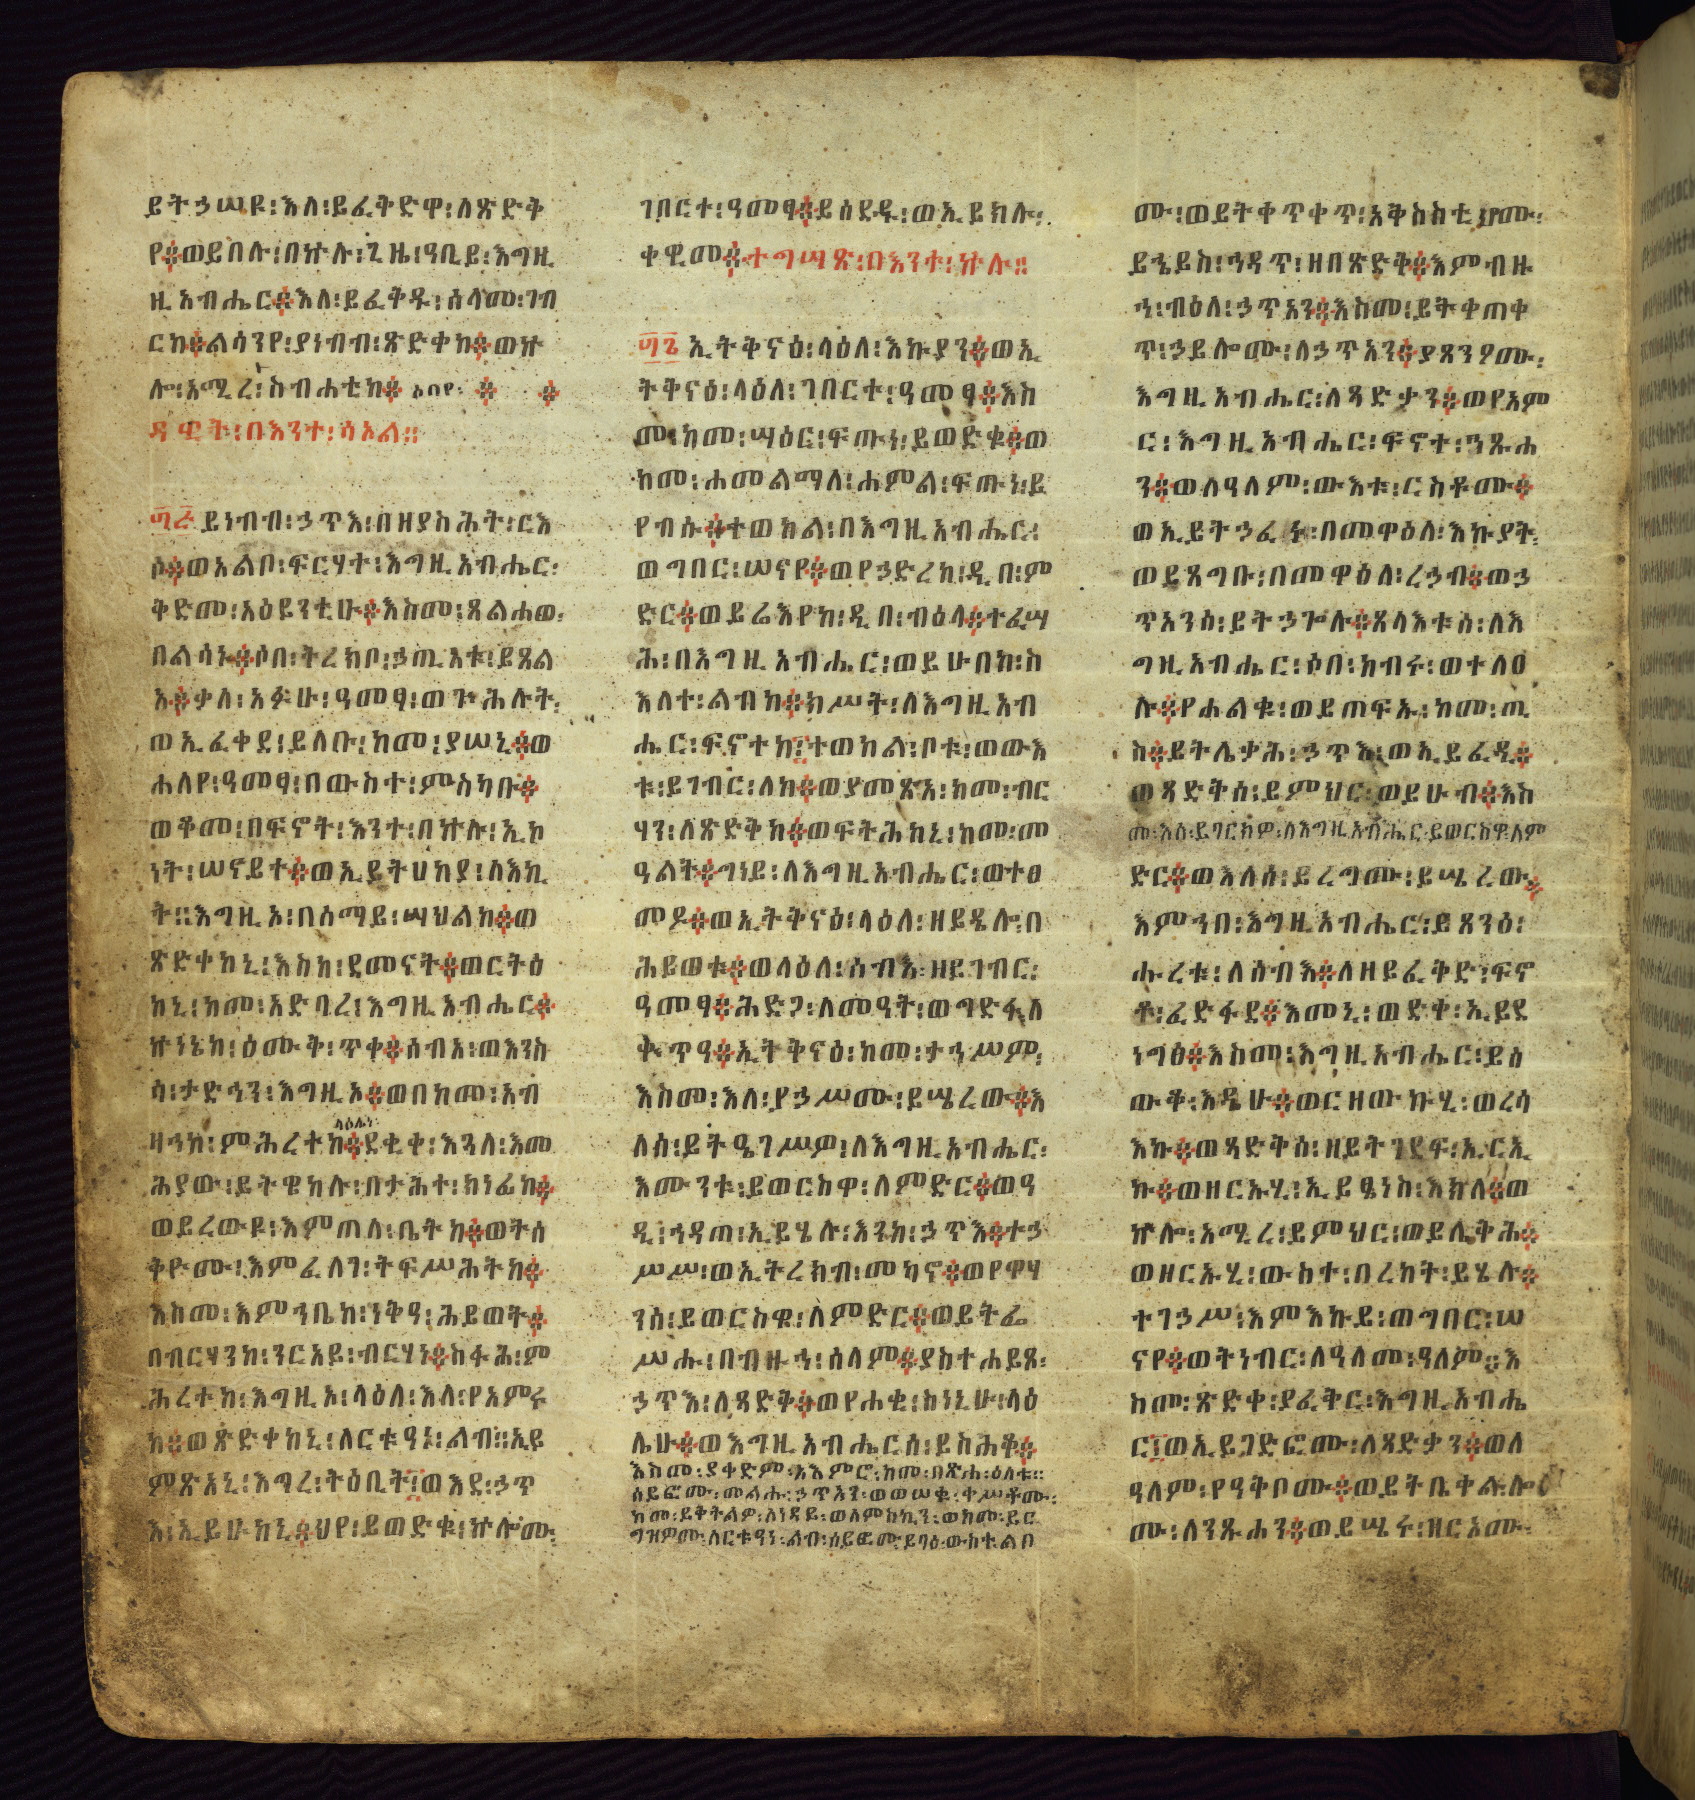 ይትኃሠዩ፡እለ፡ይፈቅድዋ፡ለጽድቅ
የ፨ወይበሉ፡በኵሉ፡ጊዜ፡ዓቢይ፡እግዚ
ዚአብሔር፨እለ፡ይፈቅዱ፡ሰላመ፡ገብ
ርከ፨ልሳንየ፡ያነብብ፡ጽድቀከ፨ወኵ
ሎ፡አሚረ፡ስብሐቲከ፨
ዳዊት፡በእንተ፡ሳኦል፡፡
፴፭ይነብብ፡ኃጥእ፡በዘያስሕት፡ርእ
ሶ፨ወአልቦ፡ፍርሃተ፡እግዚአብሔር፡
ቅድመ፡አዕይንቲሁ፨እስመ፡ጸልሐወ፡
በልሳኑ፨ሶበ፡ትረክቦ፡ኃጢአቱ፡ይጸል
አ፨ቃለ፡አፉሁ፡ዓመፃ፡ወጕሕሉት፡
ወኢፈቀደ፡ይለቡ፡ከመ፡ያሠኒ፨ወ
ሐለየ፡ዓመፃ፡በውስተ፡ምስካቡ፨
ወቆመ፡በፍኖት፡እንተ፡በኵሉ፡ኢኮ
ነት፡ሠናይተ፨ወኢይትሀከያ፡ለእኪ
ት፡፡እግዚኦ፡በሰማይ፡ሣህልከ፨ወ
ጽድቀከኒ፡እስከ፡ደመናት፨ወርትዕ
ከኒ፡ከመ፡አድባረ፡እግዚአብሔር፨
ኵነኔከ፡ዕሙቅ፡ጥቀ፨ሰብአ፡ወእንስ
ሳ፡ታድኅን፡እግዚኦ፨ወበከመ፡አብ
ላዕሌነ
ዛኅከ፡ምሕረተከ፨ደቂቀ፡እጓለ፡እመ
ሕያው፡ይትዌከሉ፡በታሕተ፡ክነፊከ፨
ወይረውዩ፡እምጠለ፡ቤትከ፨ወትሰ
ቅዮሙ፡እምፈለገ፡ትፍሥሕትከ፨
እስመ፡እምኀቤከ፡ነቅዓ፡ሕይወት፨
በብርሃንከ፡ንርአይ፡ብርሃነ፨ስፋሕ፡ም
ሕረተከ፡እግዚኦ፡ላዕለ፡እለ፡የአምሩ
ከ፨ወጽድቀከኒ፡ለርቱዓኒ፡ልብ፡፡ኢይ
ምጽአኒ፡እግረ፡ትዕቢት፡ወእደ፡ኃጥ
እ፡ኢይሁከኒ፨ህየ፡ይወድቁ፡ኵሎሙ፡
ገበርተ፡ዓመፃ፨ይሰደዱ፡ወኢይክሉ፡
ቀዊመ፨ተግሣጽ፡በእንተ፡ኵሉ፡፡
፴፮ኢትቅናዕ፡ላዕለ፡እኩያን፨ወኢ
ትቅናዕ፡ላዕለ፡ገበርተ፡ዓመፃ፨እስ
መ፡ከመ፡ሣዕር፡ፍጡነ፡ይወድቁ፨ወ
ከመ፡ሐመልማለ፡ሐምል፡ፍጡነ፡ይ
የብሱ፨ተወከል፡በእግዚአብሔር፡
ወግበር፡ሠናየ፨ወየኃድረከ፡ዲበ፡ም
ድር፨ወይሬእየከ፡ዲበ፡ብዕላ፨ተፈሣ
ሕ፡በእግዚአብሔር፡ወይሁበከ፡ስ
እለተ፡ልብከ፨ክሥት፡ለእግዚአብ
ሔር፡ፍኖተከ፡ተወከል፡ቦቱ፡ወውእ
ቱ፡ይገብር፡ለከ፨ወያመጽአ፡ከመ፡ብር
ሃን፡ለጽድቅከ፨ወፍትሕከኒ፡ከመ፡መ
ዓልት፨ግነይ፡ለእግዚአብሔር፡ወተፀ
መዶ፨ወኢትቅናዕ፡ላዕለ፡ዘይዴሎ፡በ
ሕይወቱ፨ወላዕለ፡ሰብእ፡ዘይገብር፡
ዓመፃ፨ሕድግ፡ለመዓት፡ወግድፋ፡ለ
ቍጥዓ፨ኢትቅናዕ፡ከመ፡ታኅሥም፡
እስመ፡እለ፡ያኃሥሙ፡ይሤረው፨እ
ለሰ፡ይትዔገሥዎ፡ለእግዚአብሔር፡
እሙንቱ፡ይወርስዋ፡ለምድር፨ወዓ
ዲ፡ኅዳጠ፡ኢይሄሉ፡እንከ፡ኃጥእ፨ተኃ
ሥሥ፡ወኢትረክብ፡መካኖ፨ወየዋሃ
ንሰ፡ይወርስዋ፡ለምድር፨ወይትፌ
ሥሑ፡በብዙኅ፡ሰላም፨ያስተሐይጾ፡
ኃጥእ፡ለጻድቅ፨ወየሐቂ፡ስነኒሁ፡ላዕ
ሌሁ፨ወእግዚአብሔርሰ፡ይስሕቆ፨
እስመ፡ያቀድም፡አእምሮ፡ከመ፡በጽሐ፡ዕለቱ፡፡
ሰይፎሙ፡መልሑ፡ኃጥአን፡ወወሠቁ፡ቀሥቶሙ፡
ከመ፡ይቅትልዎ፡ለነዳይ፡ወለምስኪን፡ወከመ፡ይር
ግዝዎሙ፡ለርቱዓነ፡ልብ፡ሰይፎሙ፡ይባዕ፡ውስተ፡ልቦ
ሙ፡ወይትቀጥቀጥ፡አቅስስቲሆሙ፡
ይኄይስ፡ኅዳጥ፡ዘበጽድቅ፨እምብዙ
ኅ፡ብዕለ፡ኃጥአን፨እስመ፡ይትቀጠቀ
ጥ፡ኃይሎሙ፡ለኃጥአን፨ያጸንዖሙ፡
እግዚአብሔር፡ለጻድቃን፨ወየአም
ር፡እግዚአብሔር፡ፍኖተ፡ንጹሐ
ን፨ወለዓለም፡ውእቱ፡ርስቶሙ፨
ወኢይትኃፈሩ፡በመዋዕለ፡እኩያት፡
ወይጸግቡ፡በመዋዕለ፡ረኃብ፨ወኃ
ጥአንሰ፡ይትኃጐሉ፨ጸላእቱሰ፡ለእ
ግዚአብሔር፡ሶበ፡ከብሩ፡ወተለዐ
ሉ፨የሐልቁ፡ወይጠፍኡ፡ከመ፡ጢ
ስ፨ይትሌቃሕ፡ኃጥእ፡ወኢይፈዲ፨
ወጻድቅሰ፡ይምህር፡ወይሁብ፨እስ
መ፡እለ፡ይባርክዎ፡ለእግዚአብሔር፡ይወርስዋ፡ለም
ድር፨ወእለሰ፡ይረግሙ፡ይሤረው፨
እምኀበ፡እግዚአብሔር፡ይጸንዕ፡
ሑረቱ፡ለሰብእ፨ለዘይፈቅድ፡ፍኖ
ቶ፡ፈድፋደ፨እመኒ፡ወድቀ፡ኢይደ
ነግፅ፨እስመ፡እግዚአብሔር፡ይሰ
ውቆ፡እዴሁ፨ወርዘውኩሂ፡ወረሳ
እኩ፨ወጻድቅሰ፡ዘይትገደፍ፡ኢርኢ
ኩ፨ወዘርኡሂ፡ኢይፄነስ፡እክለ፨ወ
ኵሎ፡አሚረ፡ይምህር፡ወይሌቅሕ፨
ወዘርኡሂ፡ውስተ፡በረከት፡ይሄሉ፨
ተገኃሥ፡እምእኩይ፡ወግበር፡ሠ
ናየ፨ወትነብር፡ለዓለመ፡ዓለም፨እ
ስመ፡ጽድቀ፡ያፈቅር፡እግዚአብሔ
ር፡ወኢይገድፎሙ፡ለጻድቃን፨ወለ
ዓለም፡የዓቅቦሙ፨ወይትቤቀልሎ
ሙ፡ለንጹሐን፨ወይሤሩ፡ዘርአሙ፡